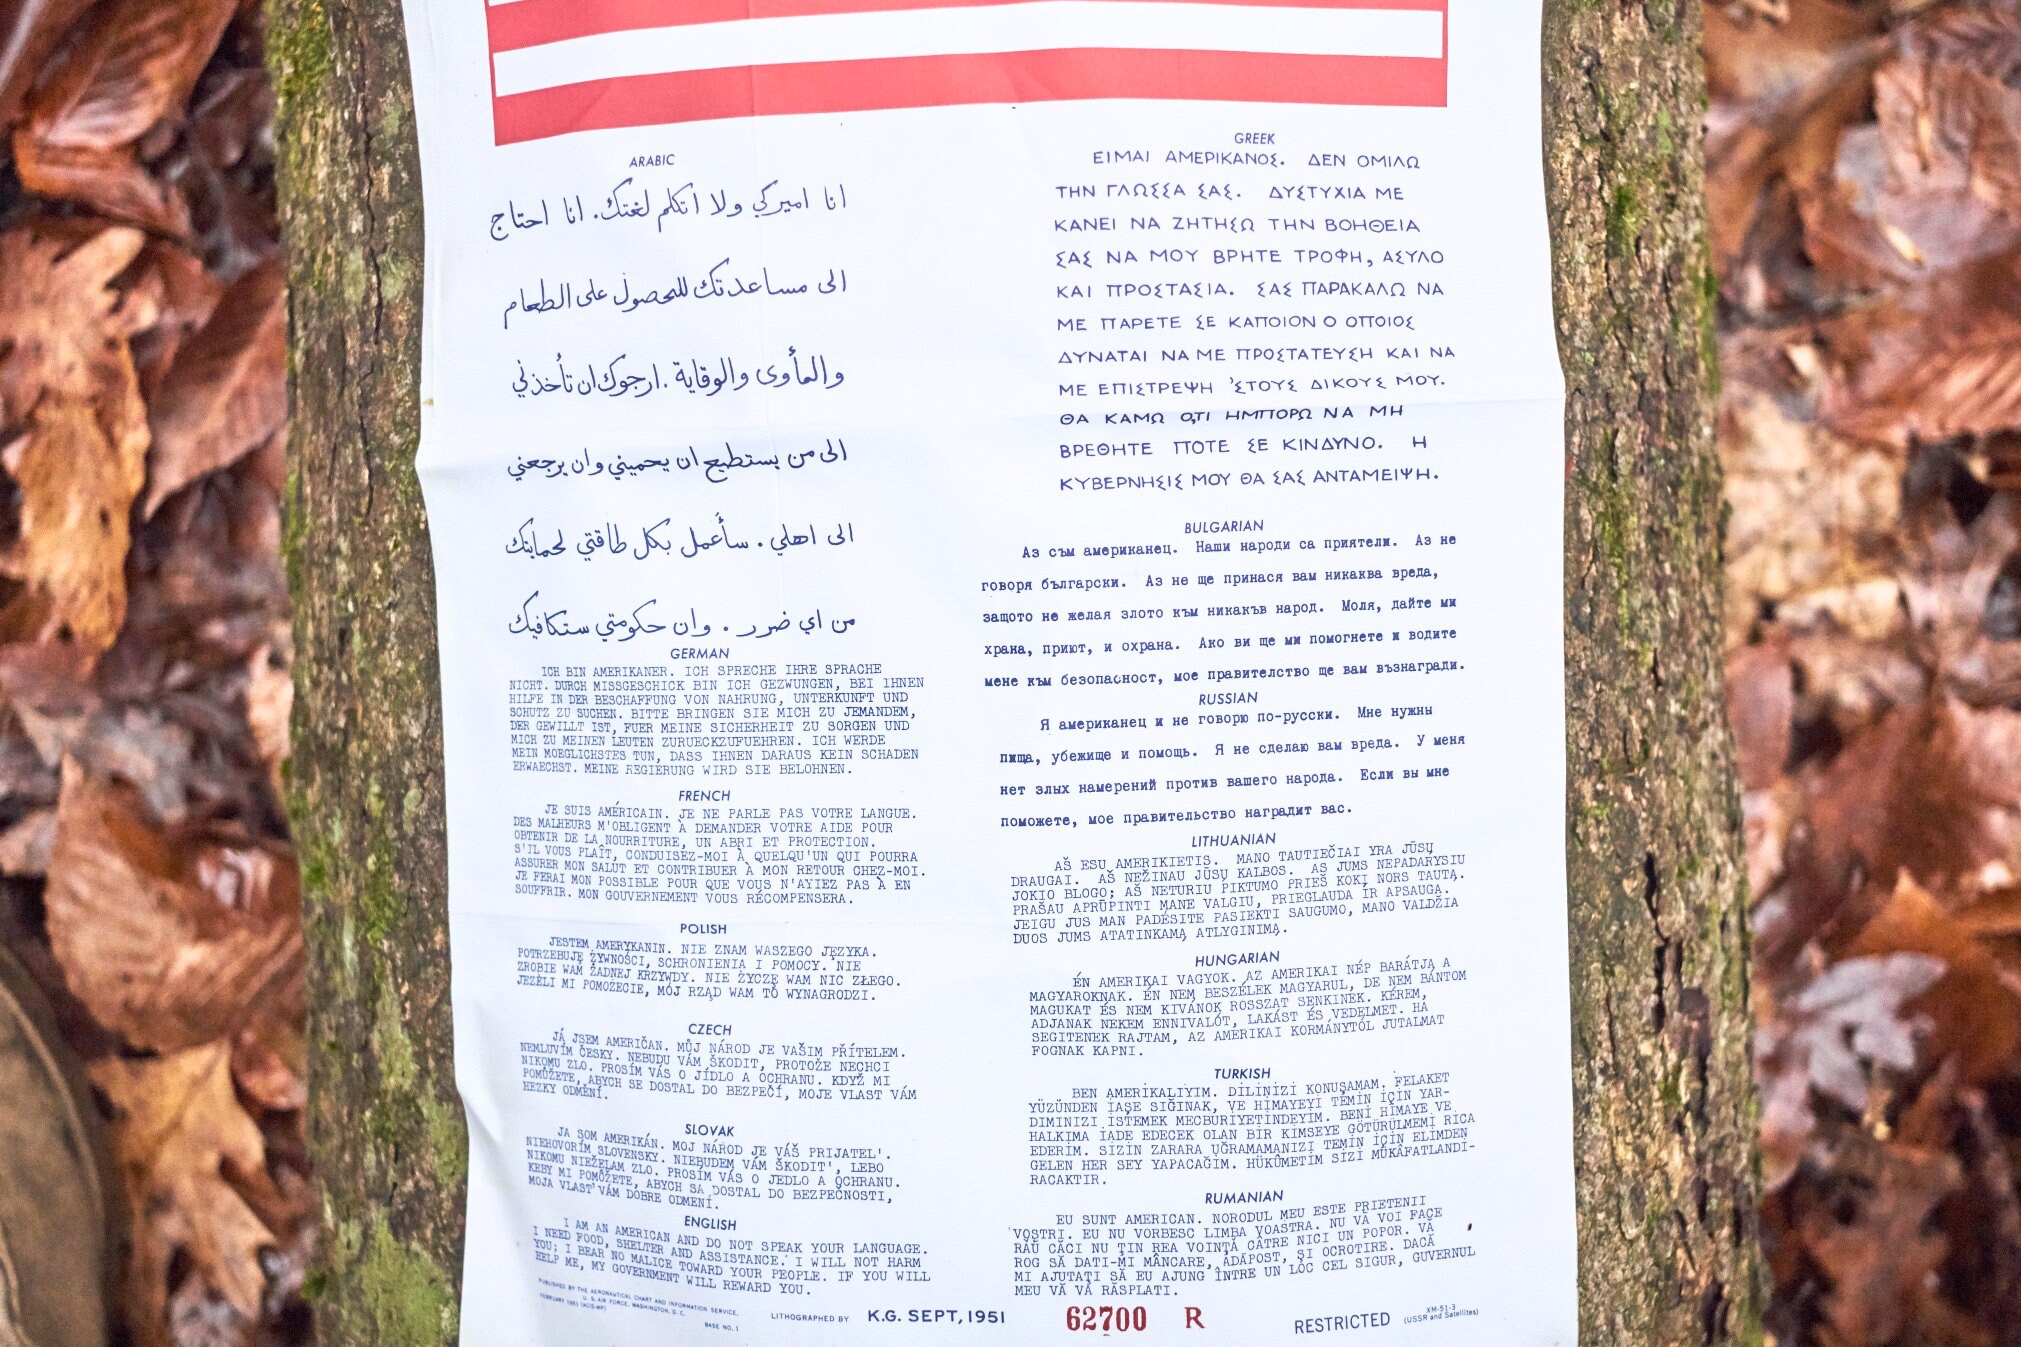 ARABIC
انا اميركي ولا اتكلم لغتك. انا احتاج
الى مساعدتك للحصول على الطعام
والمأوى والوقاية. ارجوك ان تأخذني
الى من يستطيع ان يحميني وان يرجعني
الى اهلي. سأعمل بكل طاقتي لحمايتك
من اي ضرر. وان حكومتي ستكافيك
GERMAN
ICH BIN AMERIKANER. ICH SPRECHE IHRE SPRACHE
NICHT. DURCH MISSGESCHICK BIN ICH GEZWUNGEN, BEI IHNEN
HILFE IN DER BESCHAFFUNG VON NAHRUNG, UNTERKUNFT UND
SCHUTZ ZU SUCHEN. BITTE BRINGEN SIE MICH ZU JEMANDEM,
DER GEWILLT IST, FUER MEINE SICHERHEIT ZU SORGEN UND
MICH ZU MEINEN LEUTEN ZURUECKZUFUEHREN. ICH WERDE
MEIN MOEGLICHSTES TUN, DASS IHNEN DARAUS KEIN SCHADEN
ERWAECHST. MEINE REGIERUNG WIRD SIE BELOHNEN.
FRENCH
JE SUIS AMÉRICAIN. JE NE PARLE PAS VOTRE LANGUE.
DES MALHEURS M'OBLIGENT À DEMANDER VOTRE AIDE POUR
OBTENIR DE LA NOURRITURE, UN ABRI ET PROTECTION.
S'IL VOUS PLAÎT, CONDUISEZ-MOI À QUELQU'UN QUI POURRA
ASSURER MON SALUT ET CONTRIBUER À MON RETOUR CHEZ-MOI.
JE FERAI MON POSSIBLE POUR QUE VOUS N'AYIEZ PAS À EN
SOUFFRIR. MON GOUVERNEMENT VOUS RÉCOMPENSERA.
POLISH
JESTEM AMERYKANIN. NIE ZNAM WASZEGO JĘZYKA.
POTRZEBUJĘ ŻYWNOŚCI, SCHRONIENIA I POMOCY. NIE
ZROBIE WAM ŻADNEJ KRZYWDY. NIE ŻYCZĘ WAM NIC ZŁEGO.
JEŻELI MI POMOŻECIE, MÓJ RZĄD WAM TO WYNAGRODZI.
CZECH
JÁ JSEM AMERIČAN. MŮJ NÁROD JE VAŠIM PŘÍTELEM.
NEMLUVÍM ČESKY. NEBUDU VÁM ŠKODIT, PROTOŽE NECHCI
NIKOMU ZLO. PROSÍM VÁS O JÍDLO A OCHRANU. KDYŽ MI
POMŮŽETE, ABYCH SE DOSTAL DO BEZPEČÍ, MOJE VLAST VÁM
HEZKY ODMĚNÍ.
SLOVAK
JA SOM AMERIKÁN. MOJ NÁROD JE VÁŠ PRIJATEL'.
NIEHOVORÍM SLOVENSKY. NIEBUDEM VÁM ŠKODIT', LEBO
NIKOMU NIEŽELAM ZLO. PROSÍM VÁS O JEDLO A OCHRANU.
KEBY MI POMÔŽETE, ABYCH SA DOSTAL DO BEZPEČNOSTI,
MOJA VLAST' VÁM DOBRE ODMENÍ.
ENGLISH
I AM AN AMERICAN AND DO NOT SPEAK YOUR LANGUAGE.
I NEED FOOD, SHELTER AND ASSISTANCE. I WILL NOT HARM
YOU; I BEAR NO MALICE TOWARD YOUR PEOPLE. IF YOU WILL
HELP ME, MY GOVERNMENT WILL REWARD YOU.
GREEK
ΕΙΜΑΙ ΑΜΕΡΙΚΑΝΟΣ. ΔΕΝ ΟΜΙΛΩ
ΤΗΝ ΓΛΩΣΣΑ ΣΑΣ. ΔΥΣΤΥΧΙΑ ΜΕ
ΚΑΝΕΙ ΝΑ ΖΗΤΗΣΩ ΤΗΝ ΒΟΗΘΕΙΑ
ΣΑΣ ΝΑ ΜΟΥ ΒΡΗΤΕ ΤΡΟΦΗ, ΑΣΥΛΟ
ΚΑΙ ΠΡΟΣΤΑΣΙΑ. ΣΑΣ ΠΑΡΑΚΑΛΩ ΝΑ
ΜΕ ΠΑΡΕΤΕ ΣΕ ΚΑΠΟΙΟΝ Ο ΟΠΟΙΟΣ
ΔΥΝΑΤΑΙ ΝΑ ΜΕ ΠΡΟΣΤΑΤΕΥΣΗ ΚΑΙ ΝΑ
ΜΕ ΕΠΙΣΤΡΕΨΗ 'ΣΤΟΥΣ ΔΙΚΟΥΣ ΜΟΥ.
ΘΑ ΚΑΜΩ Ο,ΤΙ ΗΜΠΟΡΩ ΝΑ ΜΗ
ΒΡΕΘΗΤΕ ΠΟΤΕ ΣΕ ΚΙΝΔΥΝΟ. Η
ΚΥΒΕΡΝΗΣΙΣ ΜΟΥ ΘΑ ΣΑΣ ΑΝΤΑΜΕΙΨΗ.
BULGARIAN
Аз съм американец. Наши народи са приятели. Аз не
говоря български. Аз не ще принася вам никаква вреда,
защото не желая злото към никакъв народ. Моля, дайте ми
храна, приют, и охрана. Ако ви ще ми помогнете и водите
мене към безопасност, мое правителство ще вам възнагради.
RUSSIAN
Я американец и не говорю по-русски. Мне нужны
пища, убежище и помощь. Я не сделаю вам вреда. У меня
нет злых намерений против вашего народа. Если вы мне
поможете, мое правительство наградит вас.
LITHUANIAN
AŠ ESU AMERIKIETIS. MANO TAUTIEČIAI YRA JŪSŲ
DRAUGAI. AŠ NEŽINAU JŪSŲ KALBOS. AŠ JUMS NEPADARYSIU
JOKIO BLOGO; AŠ NETURIU PIKTUMO PRIEŠ KOKĮ NORS TAUTĄ.
PRAŠAU APRŪPINTI MANE VALGIU, PRIEGLAUDA IR APSAUGA.
JEIGU JUS MAN PADĖSITE PASIEKTI SAUGUMO, MANO VALDŽIA
DUOS JUMS ATATINKAMĄ ATLYGINIMĄ.
HUNGARIAN
ÉN AMERIKAI VAGYOK. AZ AMERIKAI NÉP BARÁTJA A
MAGYAROKNAK. ÉN NEM BESZÉLEK MAGYARUL, DE NEM BÁNTOM
MAGUKAT ÉS NEM KIVÁNOK ROSSZAT SENKINEK. KÉREM,
ADJANAK NEKEM ENNIVALÓT, LAKÁST ÉS VEDELMET. HA
SEGITENEK RAJTAM, AZ AMERIKAI KORMÁNYTÓL JUTALMAT
FOGNAK KAPNI.
TURKISH
BEN AMERİKALIYIM. DİLİNİZİ KONUŞAMAM. FELAKET
YÜZÜNDEN İAŞE SIĞINAK, VE HİMAYEYİ TEMİN İÇİN YAR-
DIMINIZI İSTEMEK MECBURİYETİNDEYİM. BENİ HİMAYE VE
HALKIMA İADE EDECEK OLAN BİR KİMSEYE GÖTÜRÜLMEMİ RICA
EDERİM. SİZİN ZARARA UĞRAMAMANIZI TEMİN İÇİN ELİMDEN
GELEN HER SEY YAPACAĞIM. HÜKÛMETİM SİZİ MÜKÂFATLANDI-
RACAKTIR.
RUMANIAN
EU SUNT AMERICAN. NORODUL MEU ESTE PRIETENII
VOSTRI. EU NU VORBESC LIMBA VOASTRA. NU VĂ VOI FACE
RĂU CĂCI NU ȚIN REA VOINȚĂ CĂTRE NICI UN POPOR. VĂ
ROG SĂ DAȚI-MI MÂNCARE, ADĂPOST, ȘI OCROTIRE. DACĂ
MI AJUTAȚI SĂ EU AJUNG ÎNTRE UN LOC CEL SIGUR, GUVERNUL
MEU VĂ VA RĂSPLATI.
PUBLISHED BY THE AERONAUTICAL CHART AND INFORMATION SERVICE,
U. S. AIR FORCE, WASHINGTON, D. C.
BASE NO. 1
LITHOGRAPHED BY K.G. SEPT, 1951
62700 R
RESTRICTED
XM-51-3
(USSR and Satellites)